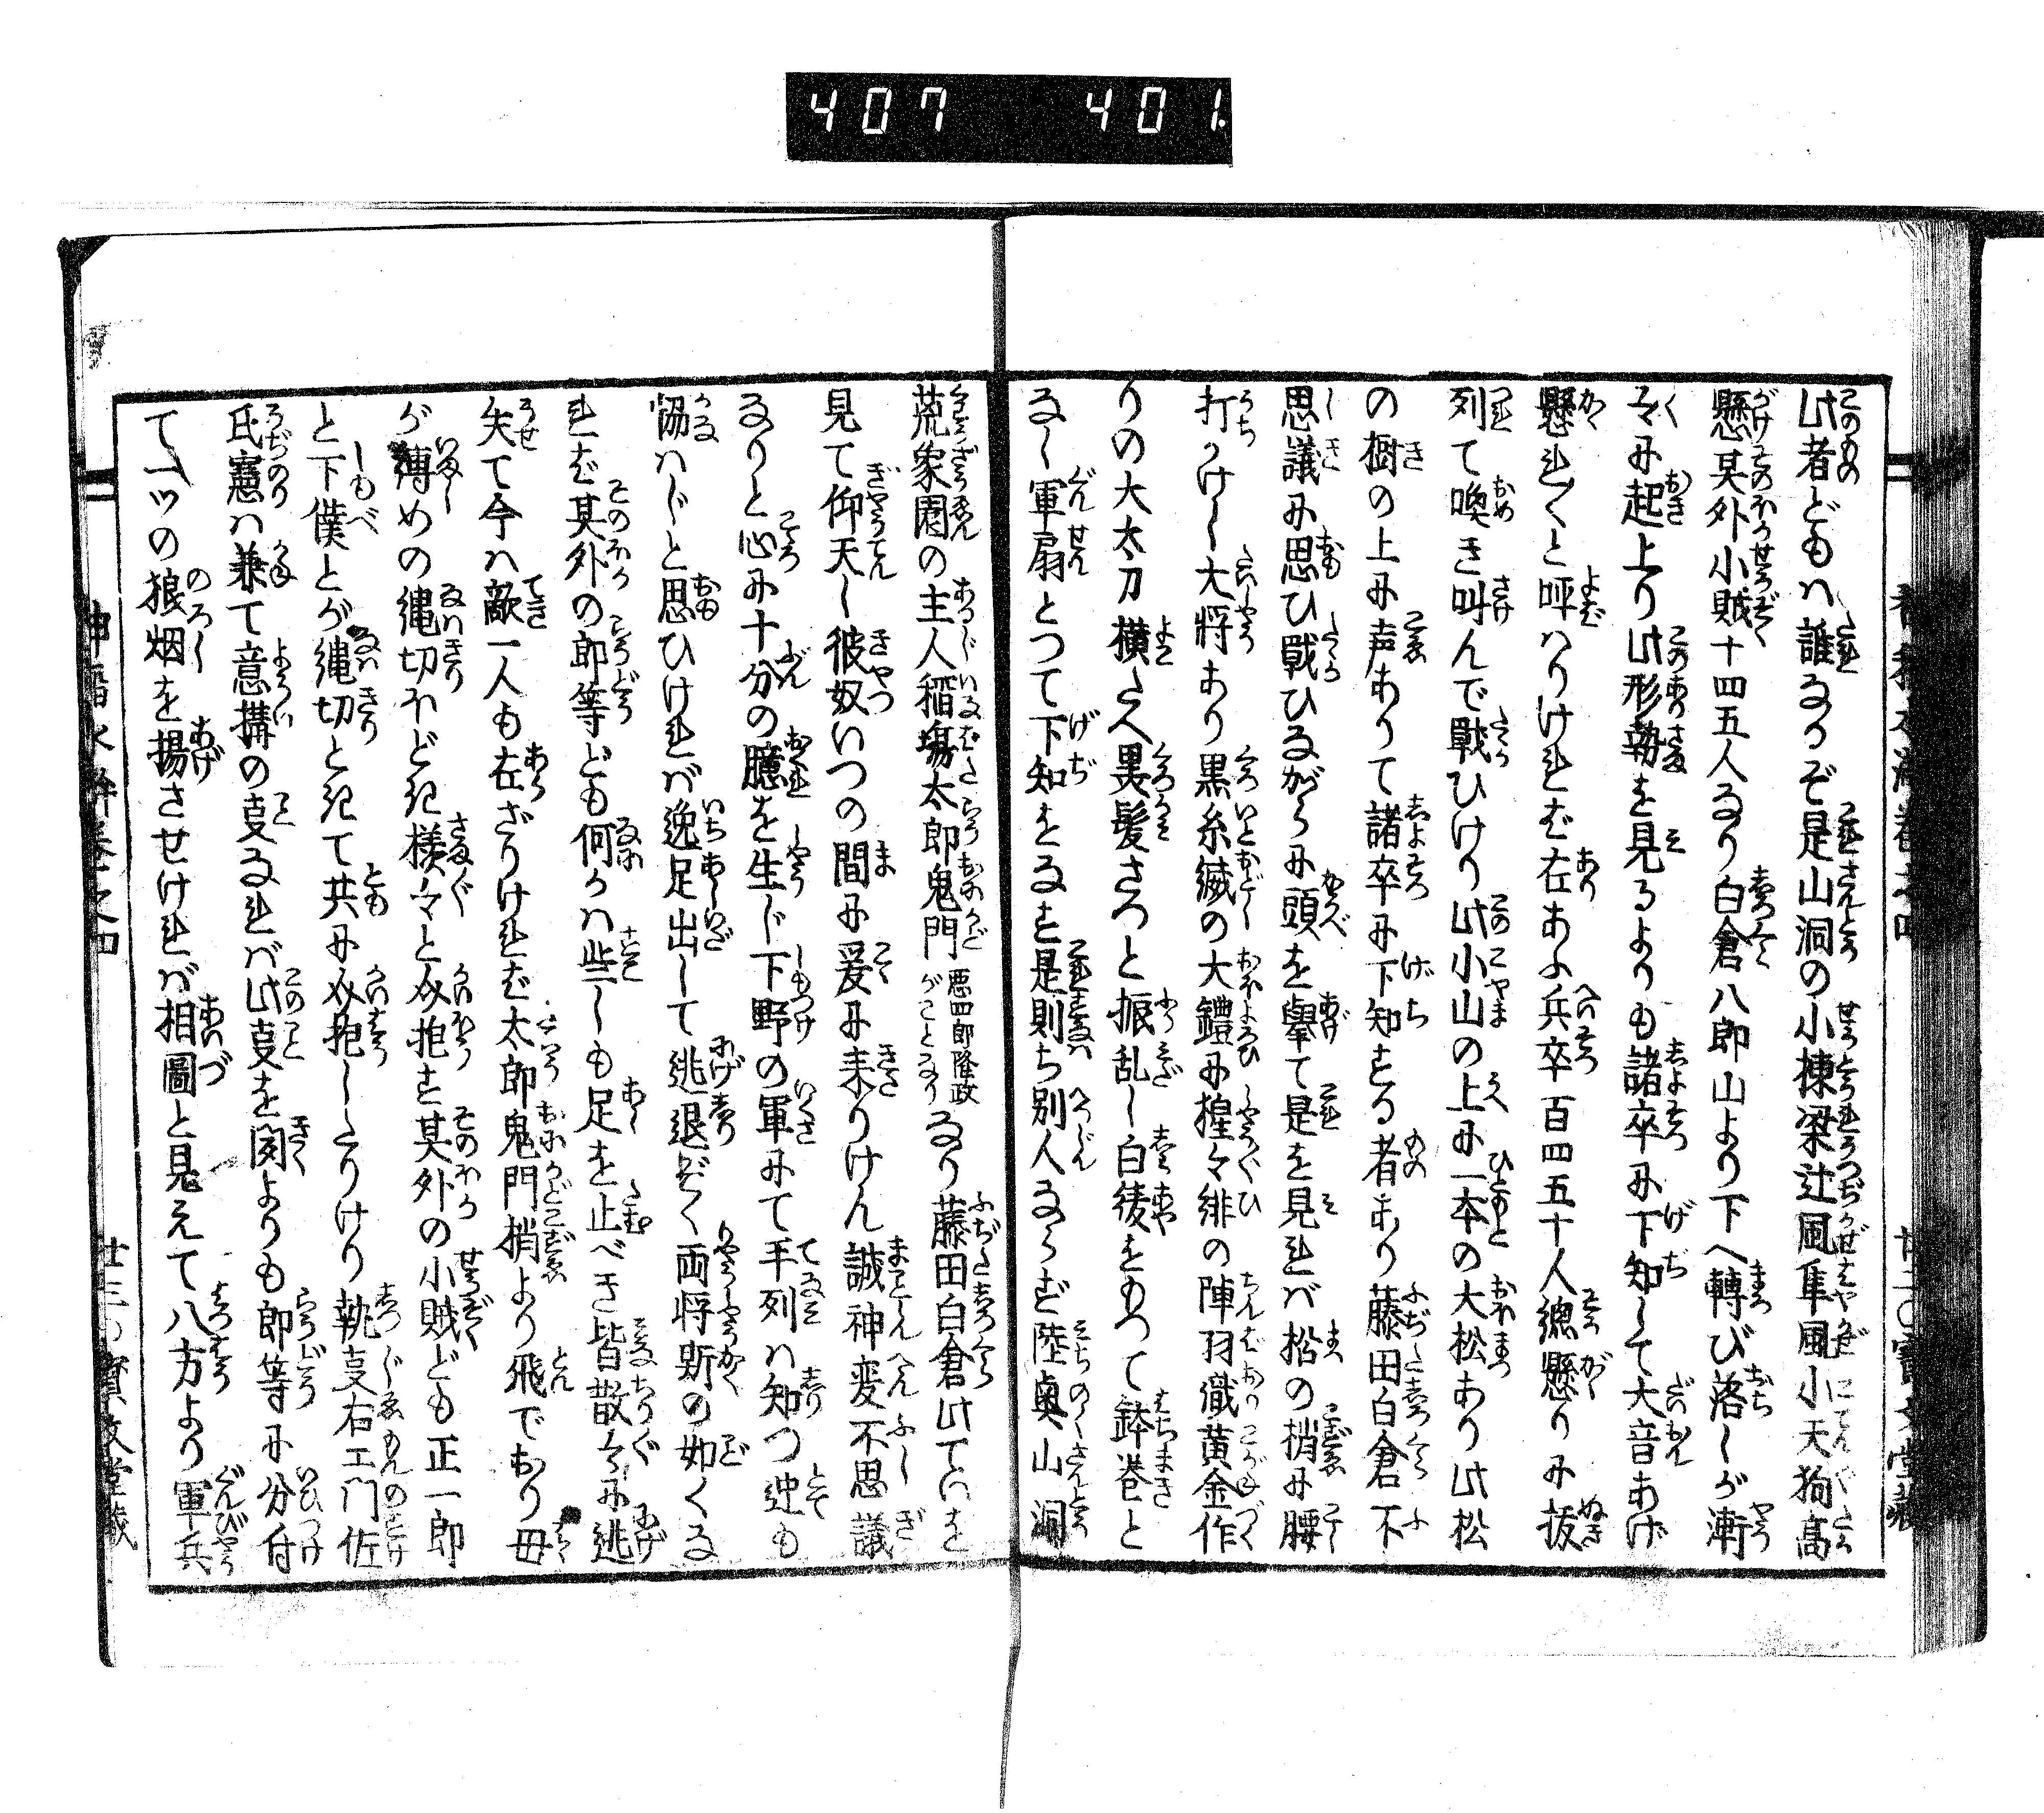 407 401.
此者どもハ誰なるぞ是山洞の小棟梁辻風隼風小天狗高
懸其外小賊十四五人なり白倉八郎山より下へ轉び落しが漸
々に起上り此形勢を見るよりも諸卒に下知して大音あげ
懸れ〱と呼ハりけれバ在あふ兵卒百四五十人總懸りに抜
列て喚き叫んで戰ひけり此小山の上に一本の大松あり此松
の樹の上に声ありて諸卒に下知をする者あり藤田白倉不
思議に思ひ戰ひながらに頭を擧て是を見れバ松の梢に腰
打かけし大将あり黒糸縅の大鎧に猩々緋の陣羽織黄金作
りの大太刀横たへ異髪さつと振乱し白綾をもつて鉢巻と
なし軍扇とつて下知をなす是則ち別人ならず陸奥山洞
荒象園の主人稲塲太郎鬼門悪四郎隆政がことなりなり藤田白倉此ていを
見て仰天し彼奴いつの間に爰に来りけん誠神変不思議
なりと心に十分の臆を生じ下野の軍にて手列ハ知つ迚も
協ハじと思ひけれバ逸足出して逃退ぞく両将斯の如くな
れバ其外の郎等ども何かハ些しも足を止べき皆散々に逃
失て今ハ敵一人も在ざりけれバ太郎鬼門梢より飛でおり毋
が縛めの縄切ほどき様々と介抱す其外の小賊ども正一郎
と下僕とが縄切ときて共に介抱したりけり執事右エ門佐
氏憲ハ兼て意搆の事なれバ此事を聞よりも郎等に分付
て一ツの狼烟を揚させけれバ相圖と見えて八方より軍兵